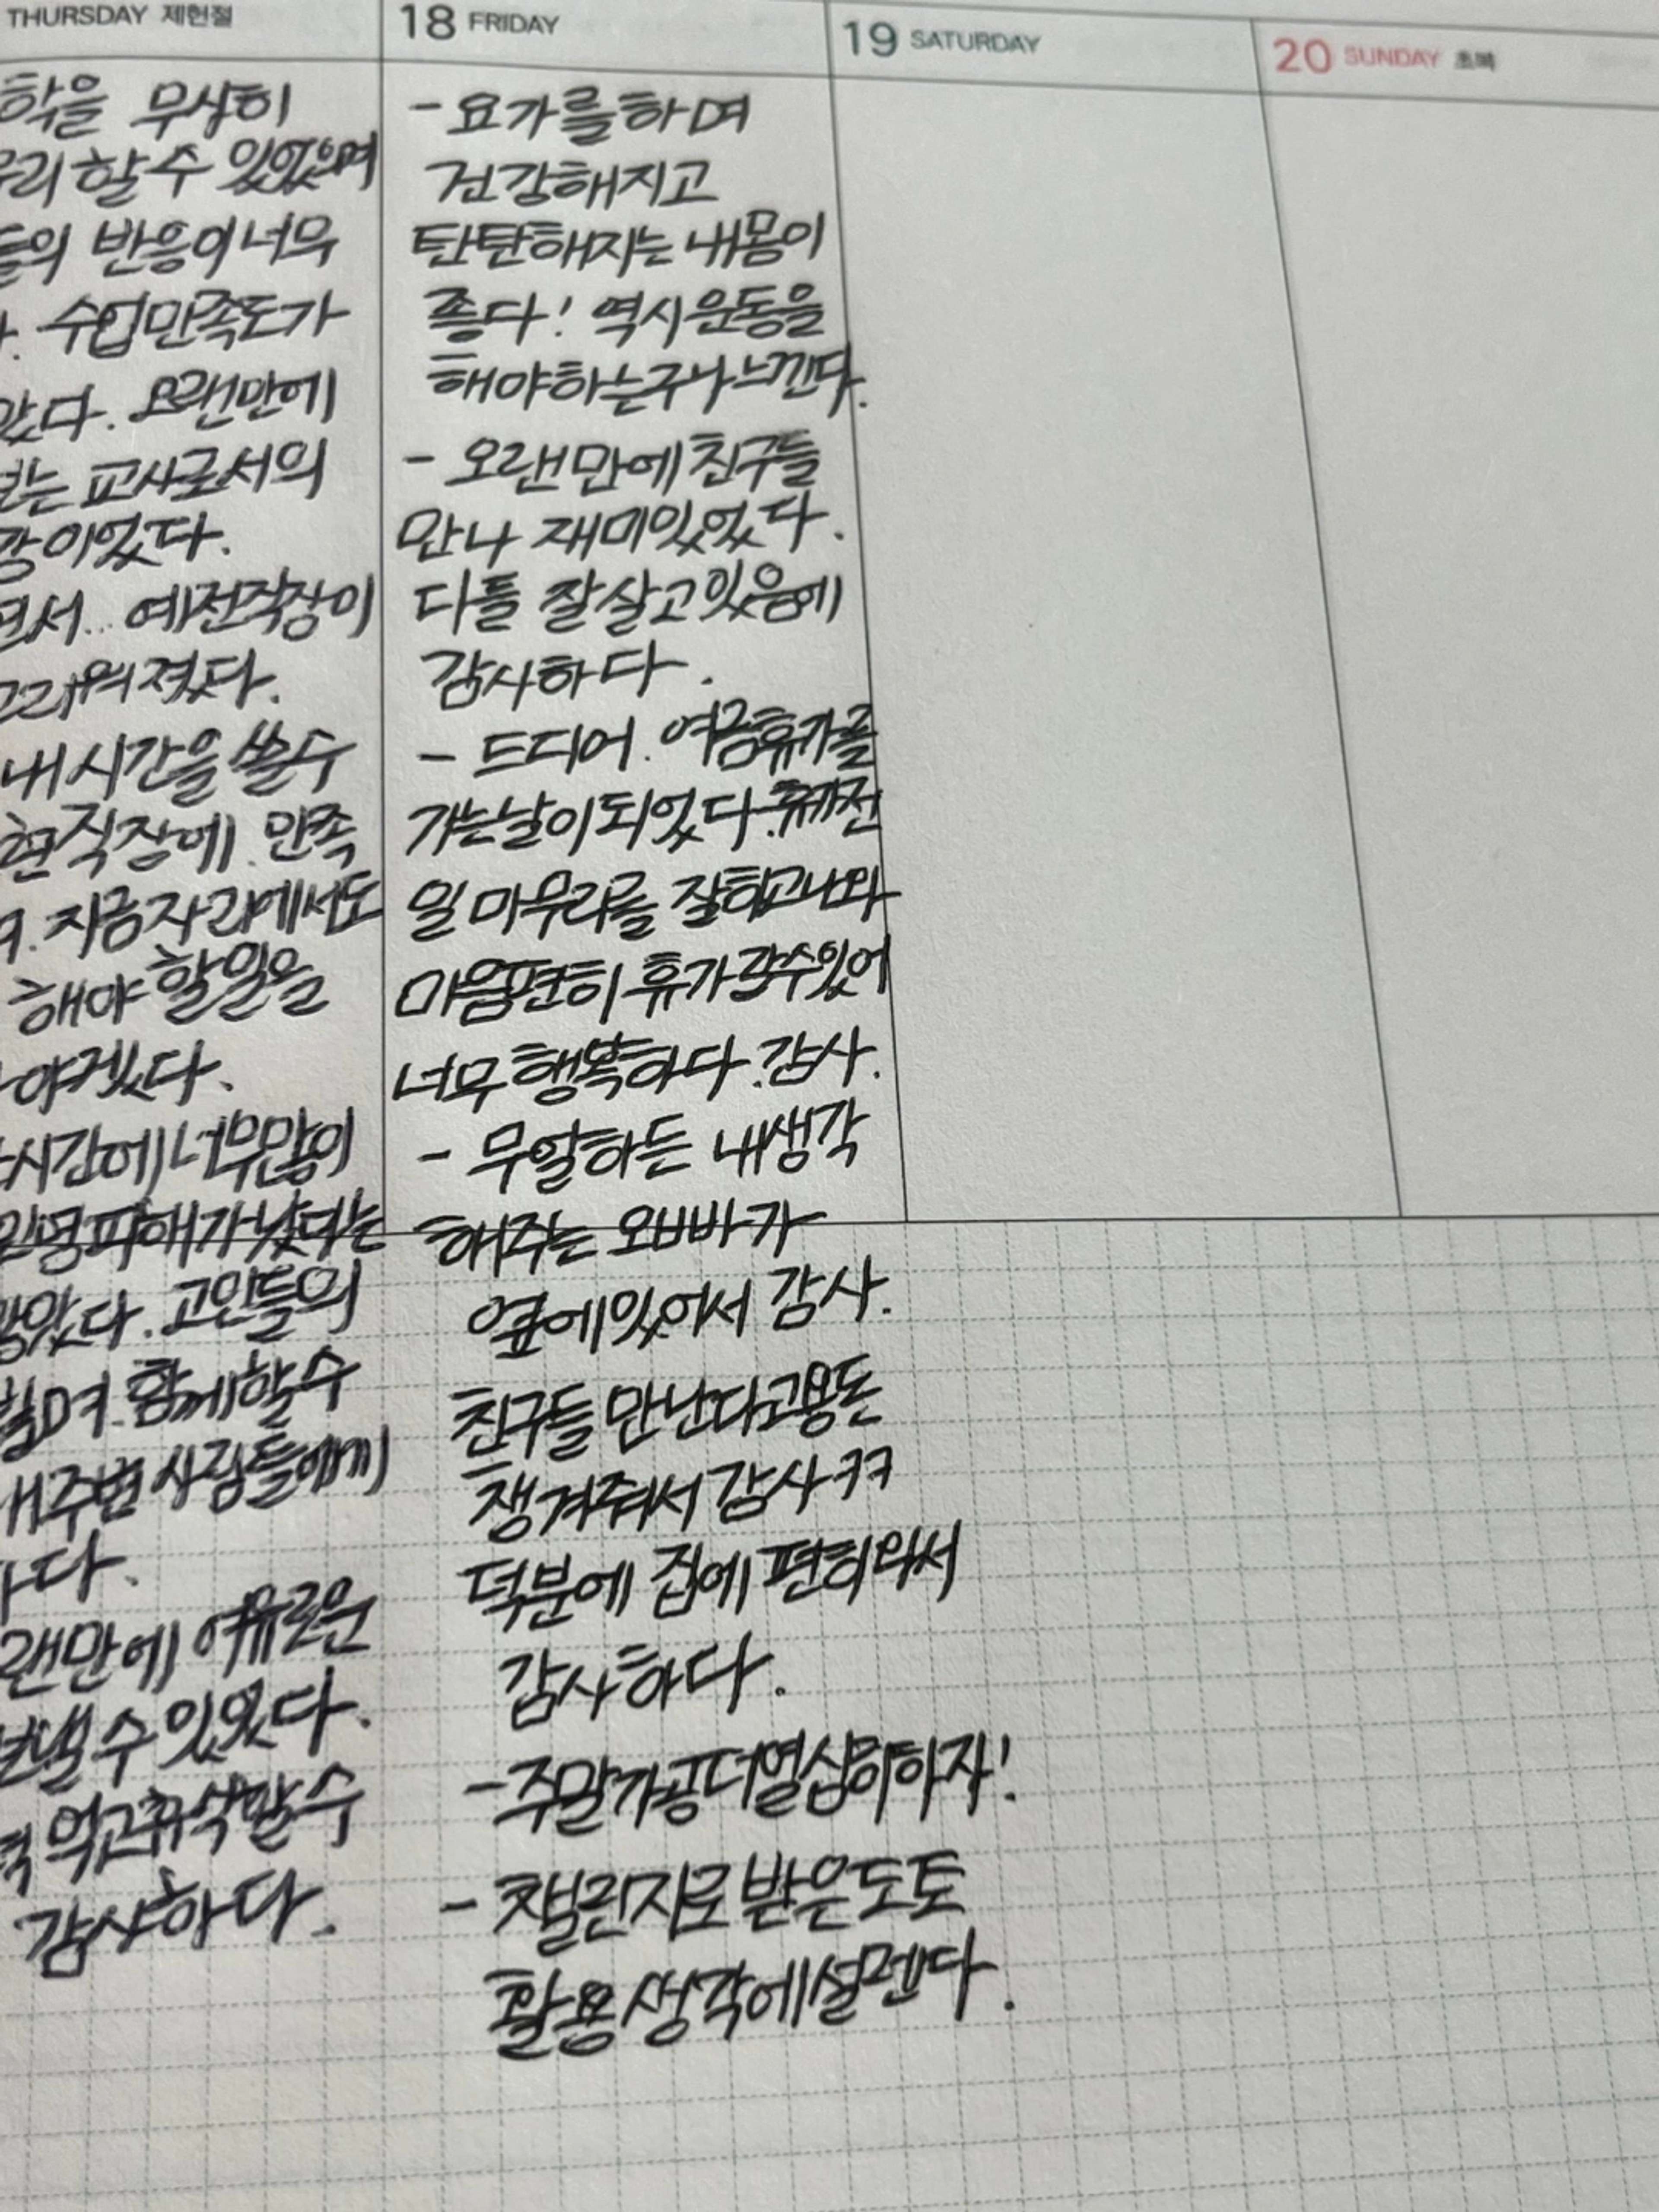 THURSDAY 제헌절
학을 무사히
무리 할 수 있었으며
들의 반응이 너무
수업만족도가
았다. 오랜만에
받는 교사로서의
감이었다.
면서... 예전직장이
그리워졌다.
내 시간을 쓸수
현직장에 만족
며. 지금자리에서도
해야 할일을
야겠다.
시간에 너무많이
인명피해가났다는
않았다. 고인들의
빌며 함께할수
내주변 사람들에게
하다.
랜만에 여유로운
보낼 수 있었다.
먹고 휴식할 수
감사하다.
18 FRIDAY
- 요가를하며
건강해지고
탄탄해지는 내몸이
좋다! 역시 운동을
해야하는구나 느낀다.
- 오랜만에 친구들
만나 재미있었다.
다들 잘 살고있음에
감사하다.
- 드디어. 여름휴가를
가는날이 되었다. 휴가전
일 마무리를 잘하고나와
마음편히 휴가갈수있어
너무 행복하다. 감사.
- 무얼하든 내생각
해주는 오빠가
옆에있어서 감사.
친구들 만난다고용돈
챙겨줘서 감사ㅋㅋ
덕분에 집에 편히와서
감사하다.
- 주말가공더열심히하자!
- 챌린지로 받은도토
활용생각에설렌다.
19 SATURDAY
20 SUNDAY 초복